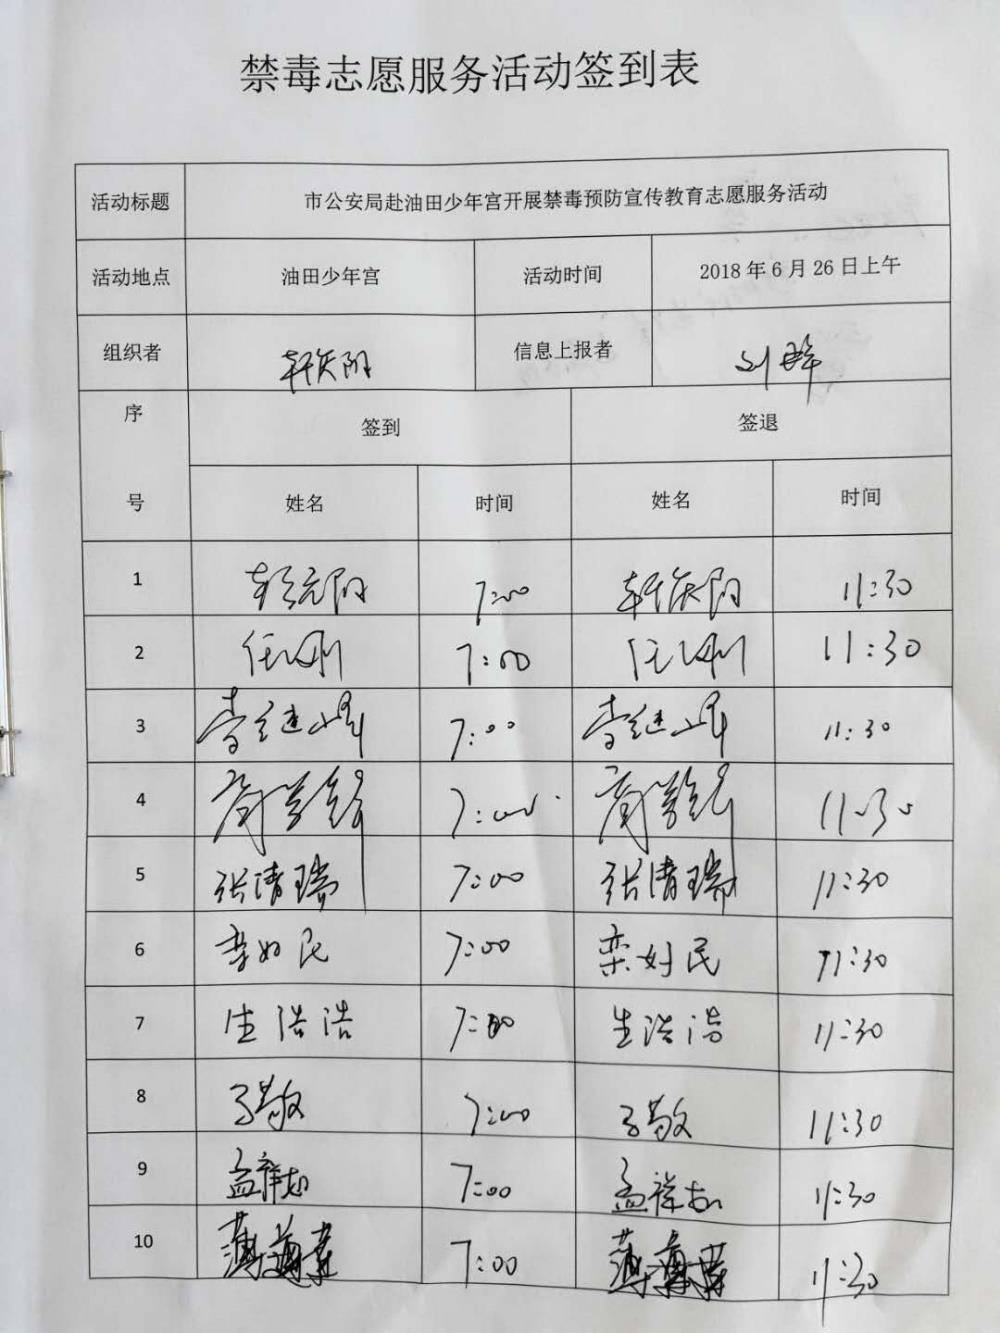 禁毒志愿服务活动签到表
活动标题 市公安局赴油田少年宫开展禁毒预防宣传教育志愿服务活动
活动地点 油田少年宫 活动时间 2018 年 6 月 26 日上午
组织者 信息上报者
序号 签到 签退
姓名 时间 姓名 时间
1 7:00 11:30
2 任刚 7:00 任刚 11:30
3 李继峰 7:00 李继峰 11:30
4 7:00 11:30
5 张清瑞 7:00 张清瑞 11:30
6 7:00 栾好民 11:30
7 生浩浩 7:00 生浩浩 11:30
8 7:00 11:30
9 孟祥志 7:00 孟祥志 11:30
10 7:00 11:30